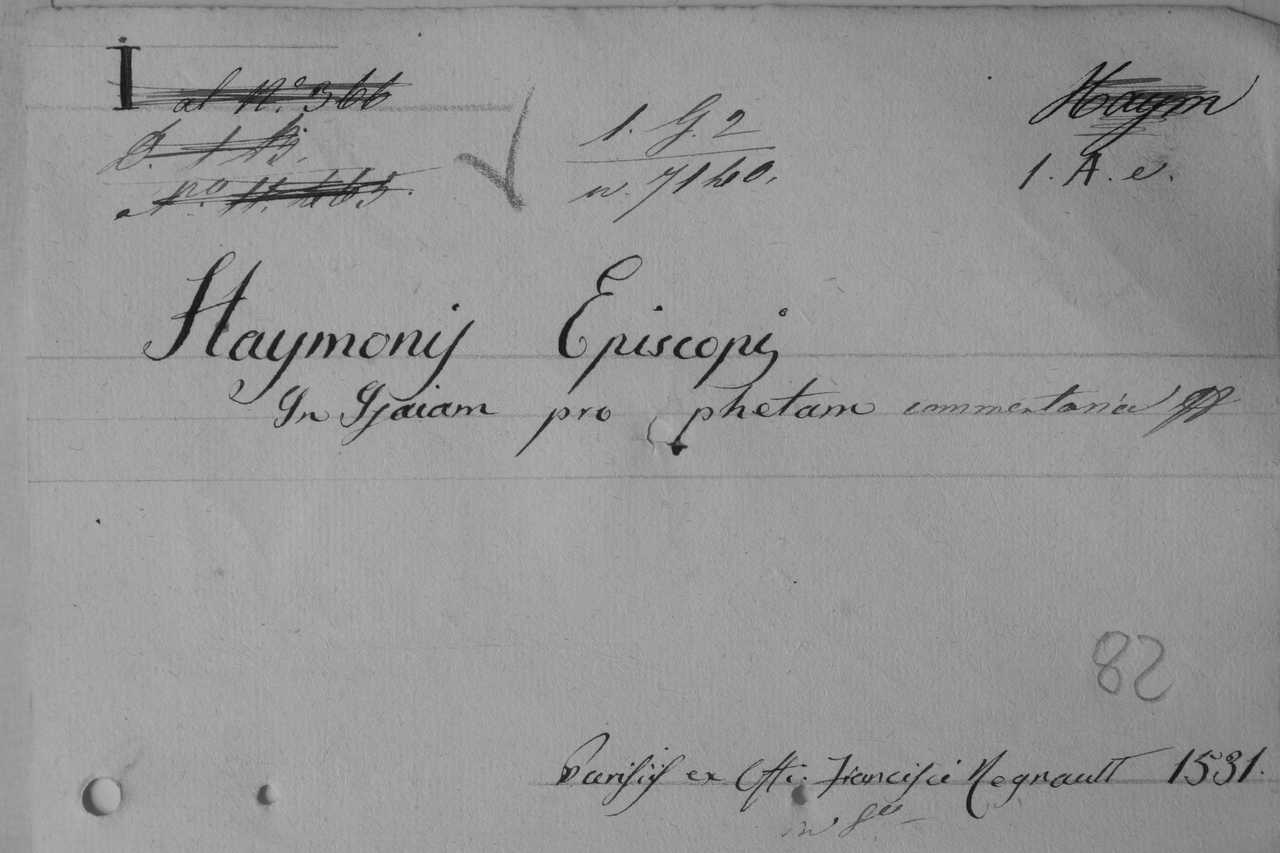 I al N.º 366
D. 1 Bi.
Nº. 11.465.
1. G. 2
n. 7140.
Haym
1. A. e.
Haymonis Episcopi
In Isaiam pro phetam commentaria
82
Parisiis ex Offi: Francisci Regnault 1531.
in 8º